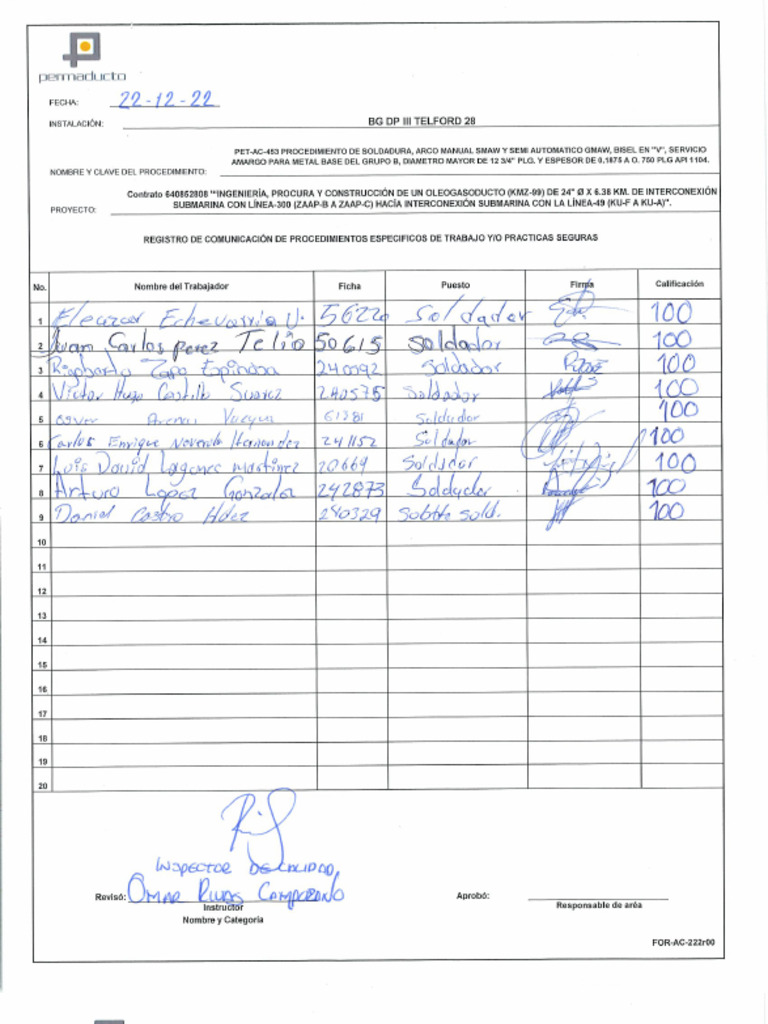 permaducto
FECHA: 22-12-22
INSTALACIÓN: BG DP III TELFORD 28
PET-AC-453 PROCEDIMIENTO DE SOLDADURA, ARCO MANUAL SMAW Y SEMI AUTOMATICO GMAW, BISEL EN "V", SERVICIO
AMARGO PARA METAL BASE DEL GRUPO B, DIAMETRO MAYOR DE 12 3/4" PLG. Y ESPESOR DE 0.1875 A O. 750 PLG API 1104.
NOMBRE Y CLAVE DEL PROCEDIMIENTO:
Contrato 640852808 "INGENIERÍA, PROCURA Y CONSTRUCCIÓN DE UN OLEOGASODUCTO (KMZ-99) DE 24" Ø X 6.38 KM. DE INTERCONEXIÓN
SUBMARINA CON LÍNEA-300 (ZAAP-B A ZAAP-C) HACÍA INTERCONEXIÓN SUBMARINA CON LA LÍNEA-49 (KU-F A KU-A)".
PROYECTO:
REGISTRO DE COMUNICACIÓN DE PROCEDIMIENTOS ESPECIFICOS DE TRABAJO Y/O PRACTICAS SEGURAS
No. Nombre del Trabajador Ficha Puesto Firma Calificación
1 Eleazar Echevarria U. 56220 Soldador 100
2 Juan Carlos perez Telio 50615 Soldador 100
3 Rigoberto Zapa Espinosa 240092 Soldador 100
4 Victor Hugo Castillo Suarez 240575 Soldador 100
5 Arenas 61381 Soldador 100
6 Carlos Enrique Hernandez 241152 Soldador 100
7 Luis David Lagunes martinez 20669 Soldador 100
8 Arturo Lopez Gonzalez 242873 Soldador 100
9 Daniel Castro Hdez 240329 sold. 100
10
11
12
13
14
15
16
17
18
19
20
INSPECTOR DE CALIDAD,
Revisó: OMAR RIVAS CAMPORANO Aprobó:
Instructor Responsable de aréa
Nombre y Categoría
FOR-AC-222r00